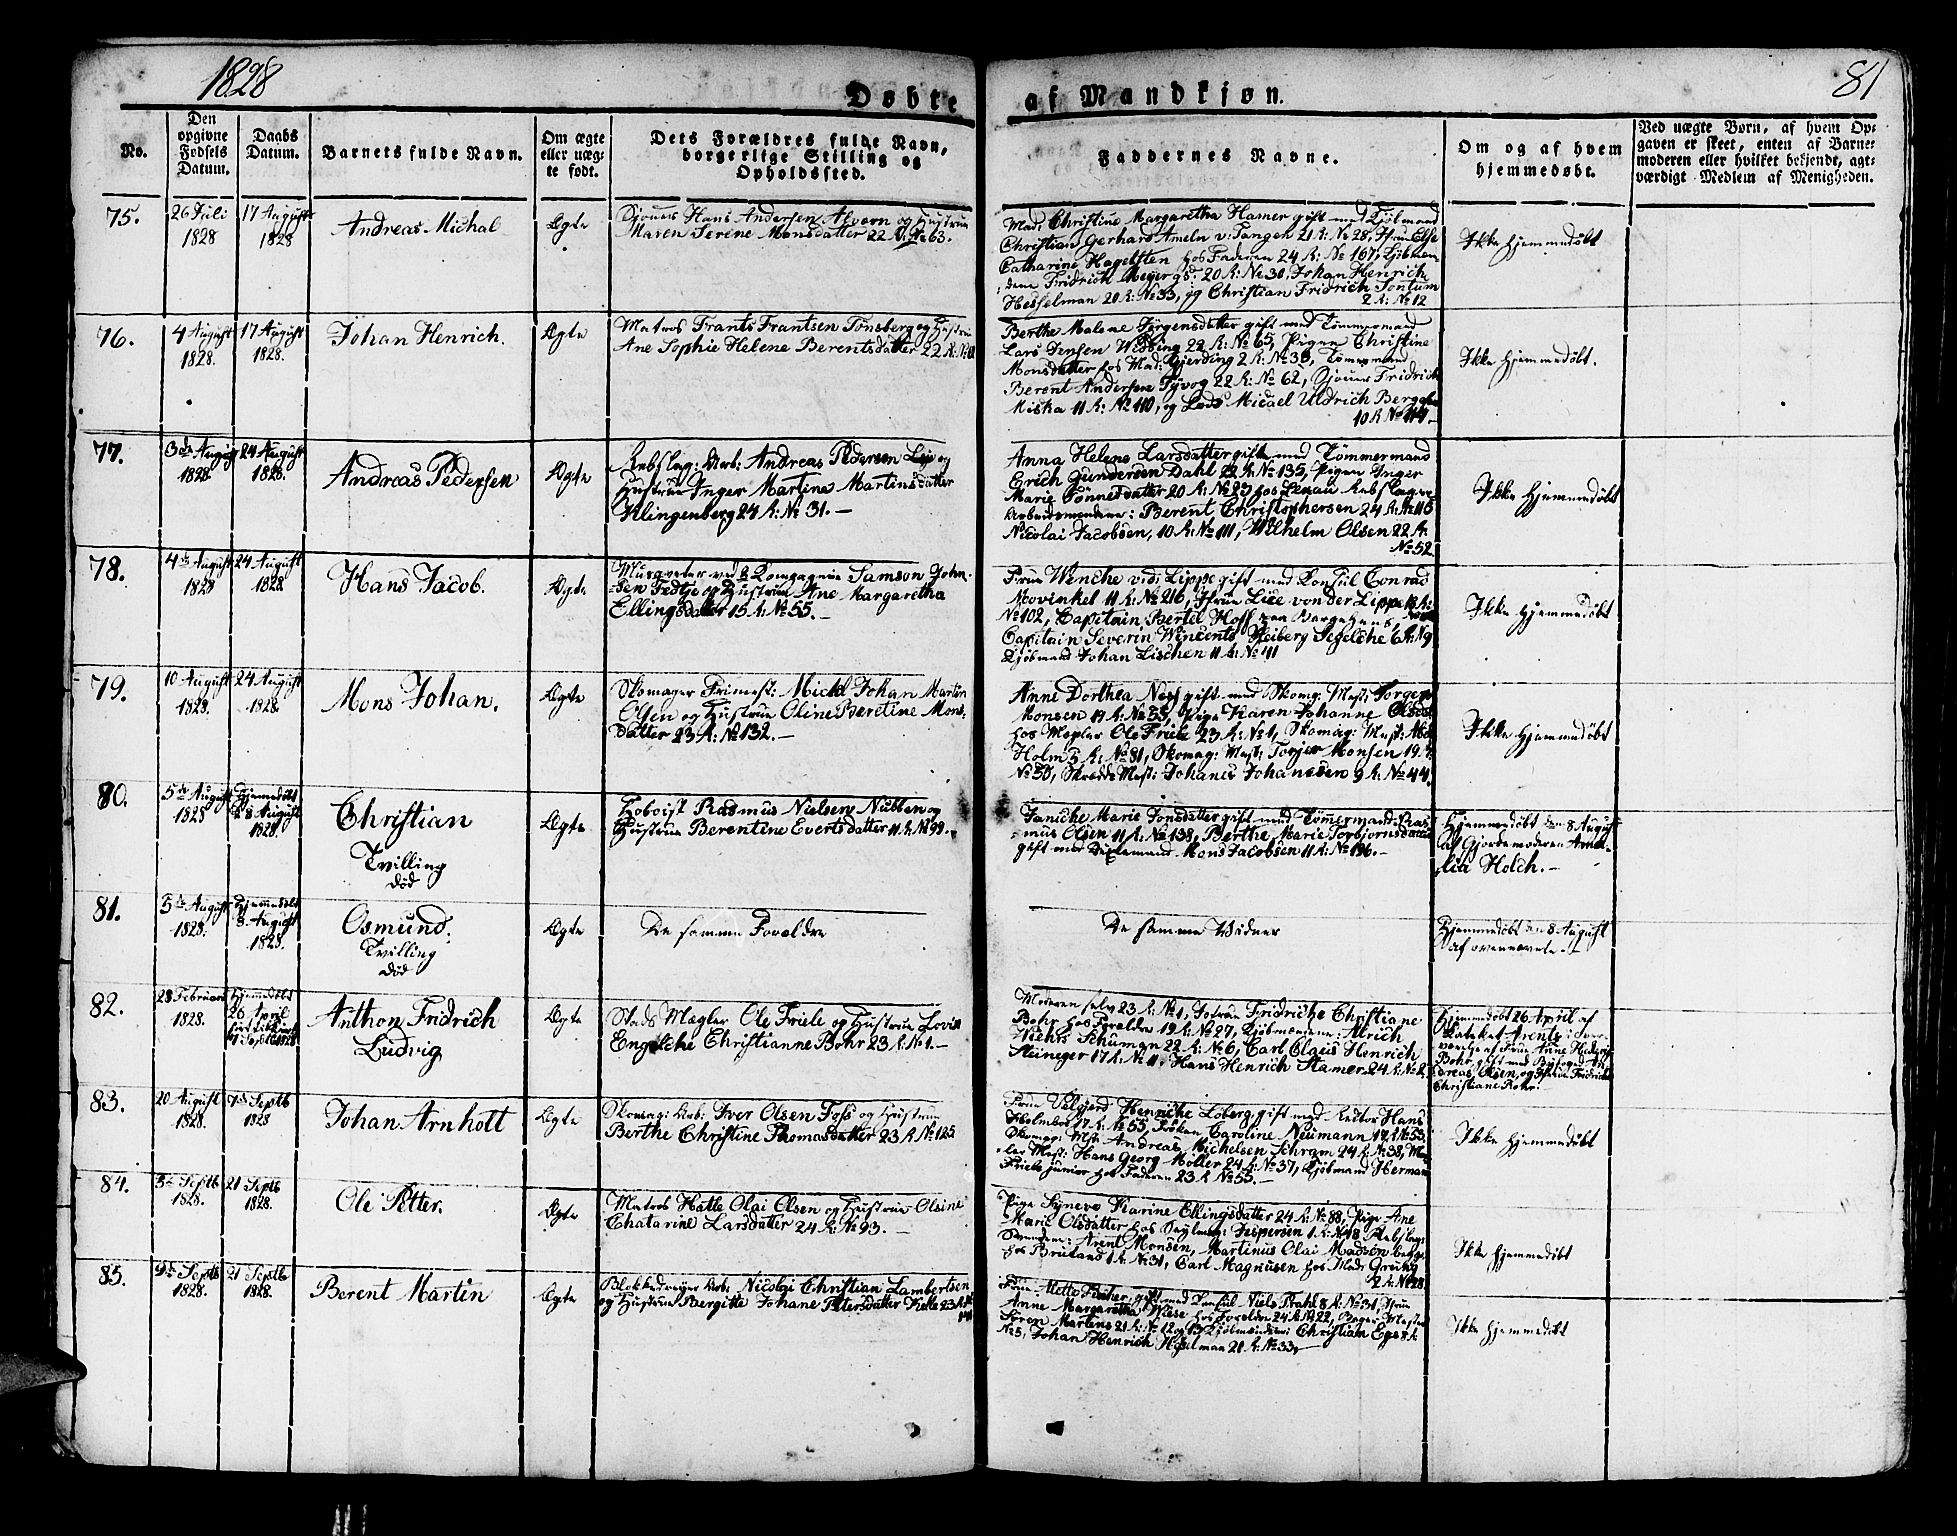 1828
Døbte
af Mandkjøn.
81
No.
Den opgivne Fødsels Datum.
Daabs Datum.
Barnets fulde Navn.
Om ægte eller uægte født.
Dets Forældres fulde Navn, borgerlige Stilling og Opholdssted.
Faddernes Navne.
Om og af hvem hjemmedøbt.
Ved uægte Børn, af hvem Op-
gaven er skeet, enten af Barne-
moderen eller hvilket bekjendt, agt-
værdigt Medlem af Menigheden.
75.
26 Juli 1828
17 August 1828
Andreas Michal
Ægte
Hans Andersen Alvern og Hustrue
Maren Serene Monsdatter 22 R: No 63.
Mad: Christine Margaretha Hamer gift med Kjøbmand
Christian Gerhard Ameln v: Tangen 21 R: No 28, Jfrue Else
Catharina Hagelsten hos Faderen 24 R: No 167, Kjøbmæn
dene Fridrich Meyer 20 R: No 30, Johan Henrich
Hesselman 20 R: No 33, og Christian Fridrich Sontum
2 R: No 12
Ikke hjemmedøbt
76.
4 August 1828.
17 August 1828.
Johan Henrich.
Ægte
Matros Frants Frantsen Tønsberg og Hustrue
Ane Sophie Helene Berentsdatter 22 R:
Berthe Malene Jørgensdatter gift med Tømmermand
Lars Jensen Widding 22 R: No 65, Pigen Christine
Monsdatter hos Mad: Gjerding 2 R: No 38, Tømermand
Berent Andersen 22 R: No 62, Fridrich
Miska 11 R: No 110, og Micael Uldrich
10 R No 114.
Ikke hjemmedøbt.
77.
3de August 1828.
24 August 1828.
Andreas Pedersen
Ægte
Rebslag: Arb: Andreas Pedersen og
Hustrue Inger Martine Martinsdatter
Klingenberg 24 R: No 31.
Anna Helene Larsdatter gift med Tömmermand
Erich Gundersen Dahl 22 R: No 135, Pigen Inger
Marie Tönnesdatter 20 R: No 23 hos
Berent Christophersen 24 R: No 116
Nicolai Jacobsen, 10 R: No 111, Wilhelm Olsen 22 R:
No 52
Ikke hjemmedøbt
78.
4de August 1828
24 August 1828.
Hans Jacob.
Ægte
Musqueter ved Compagnie Samson John-
sen Fedtje og Hustrue Ane Margaretha
Ellingsdatter 15 R: No 55.
Frue Wenche v: d: Lippe gift med Konsul Conrad
Mowinkel 11 R: No 216, Jfrue Lice von der Lippe R:
No 102, Capitain Bertel Hoff
Capitain Severin Wincents Heiberg Segelche 6 R: No 9
Kjøbmand Johan Lischen 11 R: No 111
Ikke hjemmedøbt
79.
10 August 1828.
24 August 1828.
Mons Johan.
Ægte
Skomager Johan Martin
Olsen og Hustrue Oline Beretine Mons-
datter 23 R: No 132.
Anne Dorthea gift med Skomag: Mest: Torger
Monsen 19 R: No 55, Pige Karen Johanne
hos Megler Ole Friele 23 R: No 1, Skomag: Mest:
Holm 5 R: No 81, Skomag: Mest: Torjer Monsen 19 R:
No 55, Mest: Johanes Johanesen 9 R: No 44.
Ikke hjemmedøbt
80.
5de August 1828
Hjemmedøbt 8 August 1828.
Christian
Tvilling
død
Ægte
Hoboist Rasmus Nielsen Nubben og
Hustrue Berentine Evertsdatter 11 R No 99.
Janiche Marie Jonsdatter gift med Tömermand Ras-
mus Olsen 11 R: No 138, Berthe Marie Torbjornsdatter
gift med Mons Jacobsen 11 R: No 136.
Hjemmedøbt den 8 August
af Gjordemoderen Ama-
lia Holch.
81.
5de August 1828.
Hjemmedøbt 8 August 1828.
Osmund.
Tvilling
død
Ægte
De samme Foreldre
De samme Vidner
Hjemmedøbt den 8 August
af ovennevnte.
82.
28 Februar 1828.
Hjemmedøbt 26 April
Anthon Fridrich
Ludvig
Ægte
Stads Mægler Ole Friele og Hustrue Lovise
Engelche Christianne Bohr 23 R: No 1.
Moderen selv 23 R: No 1, Jfrue Fridriche Christiane
Bohr hos Forældre 19 R: No 27, Kjøbmændene: Alrich
Wichts Schuman 22 R: No 6, Carl Claus Henrich
Steineger 17 R: No 11, Hans Henrich Stamer 24 R: No
Hjemmedøbt 26 April af
Kateket Arents
af Frue Anne
Bohr gift med
Olsen og Jfrue Fridriche
Christiane Bohr.
83.
20 August 1828.
7de Septb 1828
Johan Arnholt
Ægte
Skomag: Arb: Iver Olsen Foss og Hustrue
Berthe Christine Thomasdatter 23 R No 125
Frue Velgjerd Henriche Loberg gift med Rector Hans
Holmboe 17 R: No 55, Frøken Caroline Neumann 17 R: No 53,
Skomag: Mstr Andreas Michelsen Schram 24 R: No 38, Ma-
ler Mest: Hans Georg Möller 24 R: No 37, Kjøbmand Herman
Friele junior hos Faderen 23 R No 55.
Ikke hjemmedøbt
84.
3de Septb 1828.
21 Septb 1828.
Ole Petter.
Ægte
Matros Hatle Olai Olsen og Hustrue Olsine
Chatarine Larsdatter 24 R: No 93.
Pige Syneve Karine Ellingsdatter 24 R: No 88, Pige Ane
Marie Olsdatter hos Jespersen 1 R: No 18,
Svendene: Arent Monsen, Martinus Olai Madsen begge
hos 1 R: No 31, Carl Magnusen hos Mad:
2 R: No 28
Ikke hjemmedøbt
85.
9de Septb 1828.
21 Septb 1828.
Berent Martin
Ægte
Arb: Nicolai Christian Lambertsen
og Hustrue Bergitte Johane Petersdatter 23 R:
Frue Mette Fischer gift med Konsul Niels Prahl 8 R: No 31, Jfrue
Anne Margaretha Wiese hos Forældre 24 R: No 22, Bager Mester
Søren Martens 21 R: No 12 og 13 Kjøbmændene Christian Ege 8 R
No 5, Johan Henrich Hesselman 20 R: No 33.
Ikke hjemmedøbt